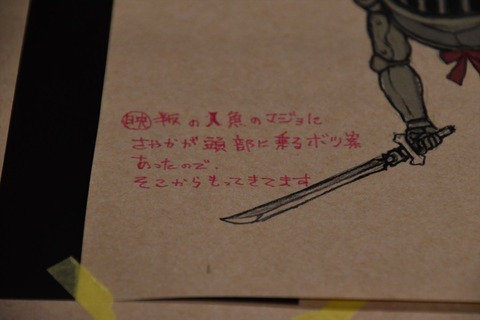 映版の人魚のマジョに
さやかが頭部に乗るボツ案
あったので、
そこからもってきてます